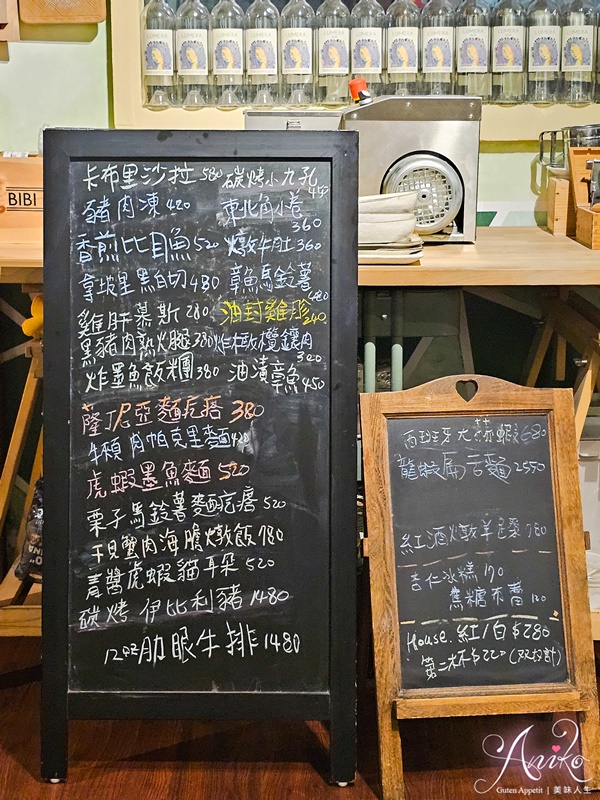 卡布里沙拉 580 碳烤小九孔 450
豬肉凍 420 東北角小卷 360
香煎比目魚 520 燉牛肚 360
拿坡里黑白切 480 章魚馬鈴薯 480
雞肝慕斯 280 油封雞胗 240
黑豬肉熟火腿 380 炸橄欖鑲肉 320
炸墨魚飯糰 380 油漬章魚 450
薩丁尼亞麵疙瘩 380
牛頰肉帕克里麵 420
虎蝦墨魚麵 520
栗子馬鈴薯麵疙瘩 520
干貝蟹肉海膽燉飯 780
青醬虎蝦貓耳朵 520
碳烤伊比利豬 1480
12oz肋眼牛排 1480
西班牙大紅蝦 680
龍蝦扁舌麵 2550
紅酒燉羊膝 780
杏仁冰糕 170
焦糖布蕾 120
House. 紅/白 $280
第二杯 $220 (双方計)
BIBI
Aniko
Guten Appetit | 美味人生